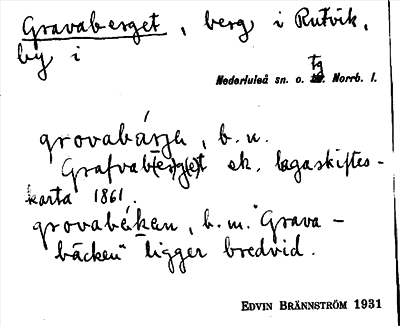 Gravaberget, berg i Rutvik,
by i
Nederluleå sn. o. tg. Norrb. l.
grovabárje, b. n.
Grafvab(er)g(e)t ek. lagaskiftes-
karta 1861.
grovabéken, b. m. "Grava-
bäcken" ligger bredvid.
EDVIN BRÄNNSTRÖM 1931